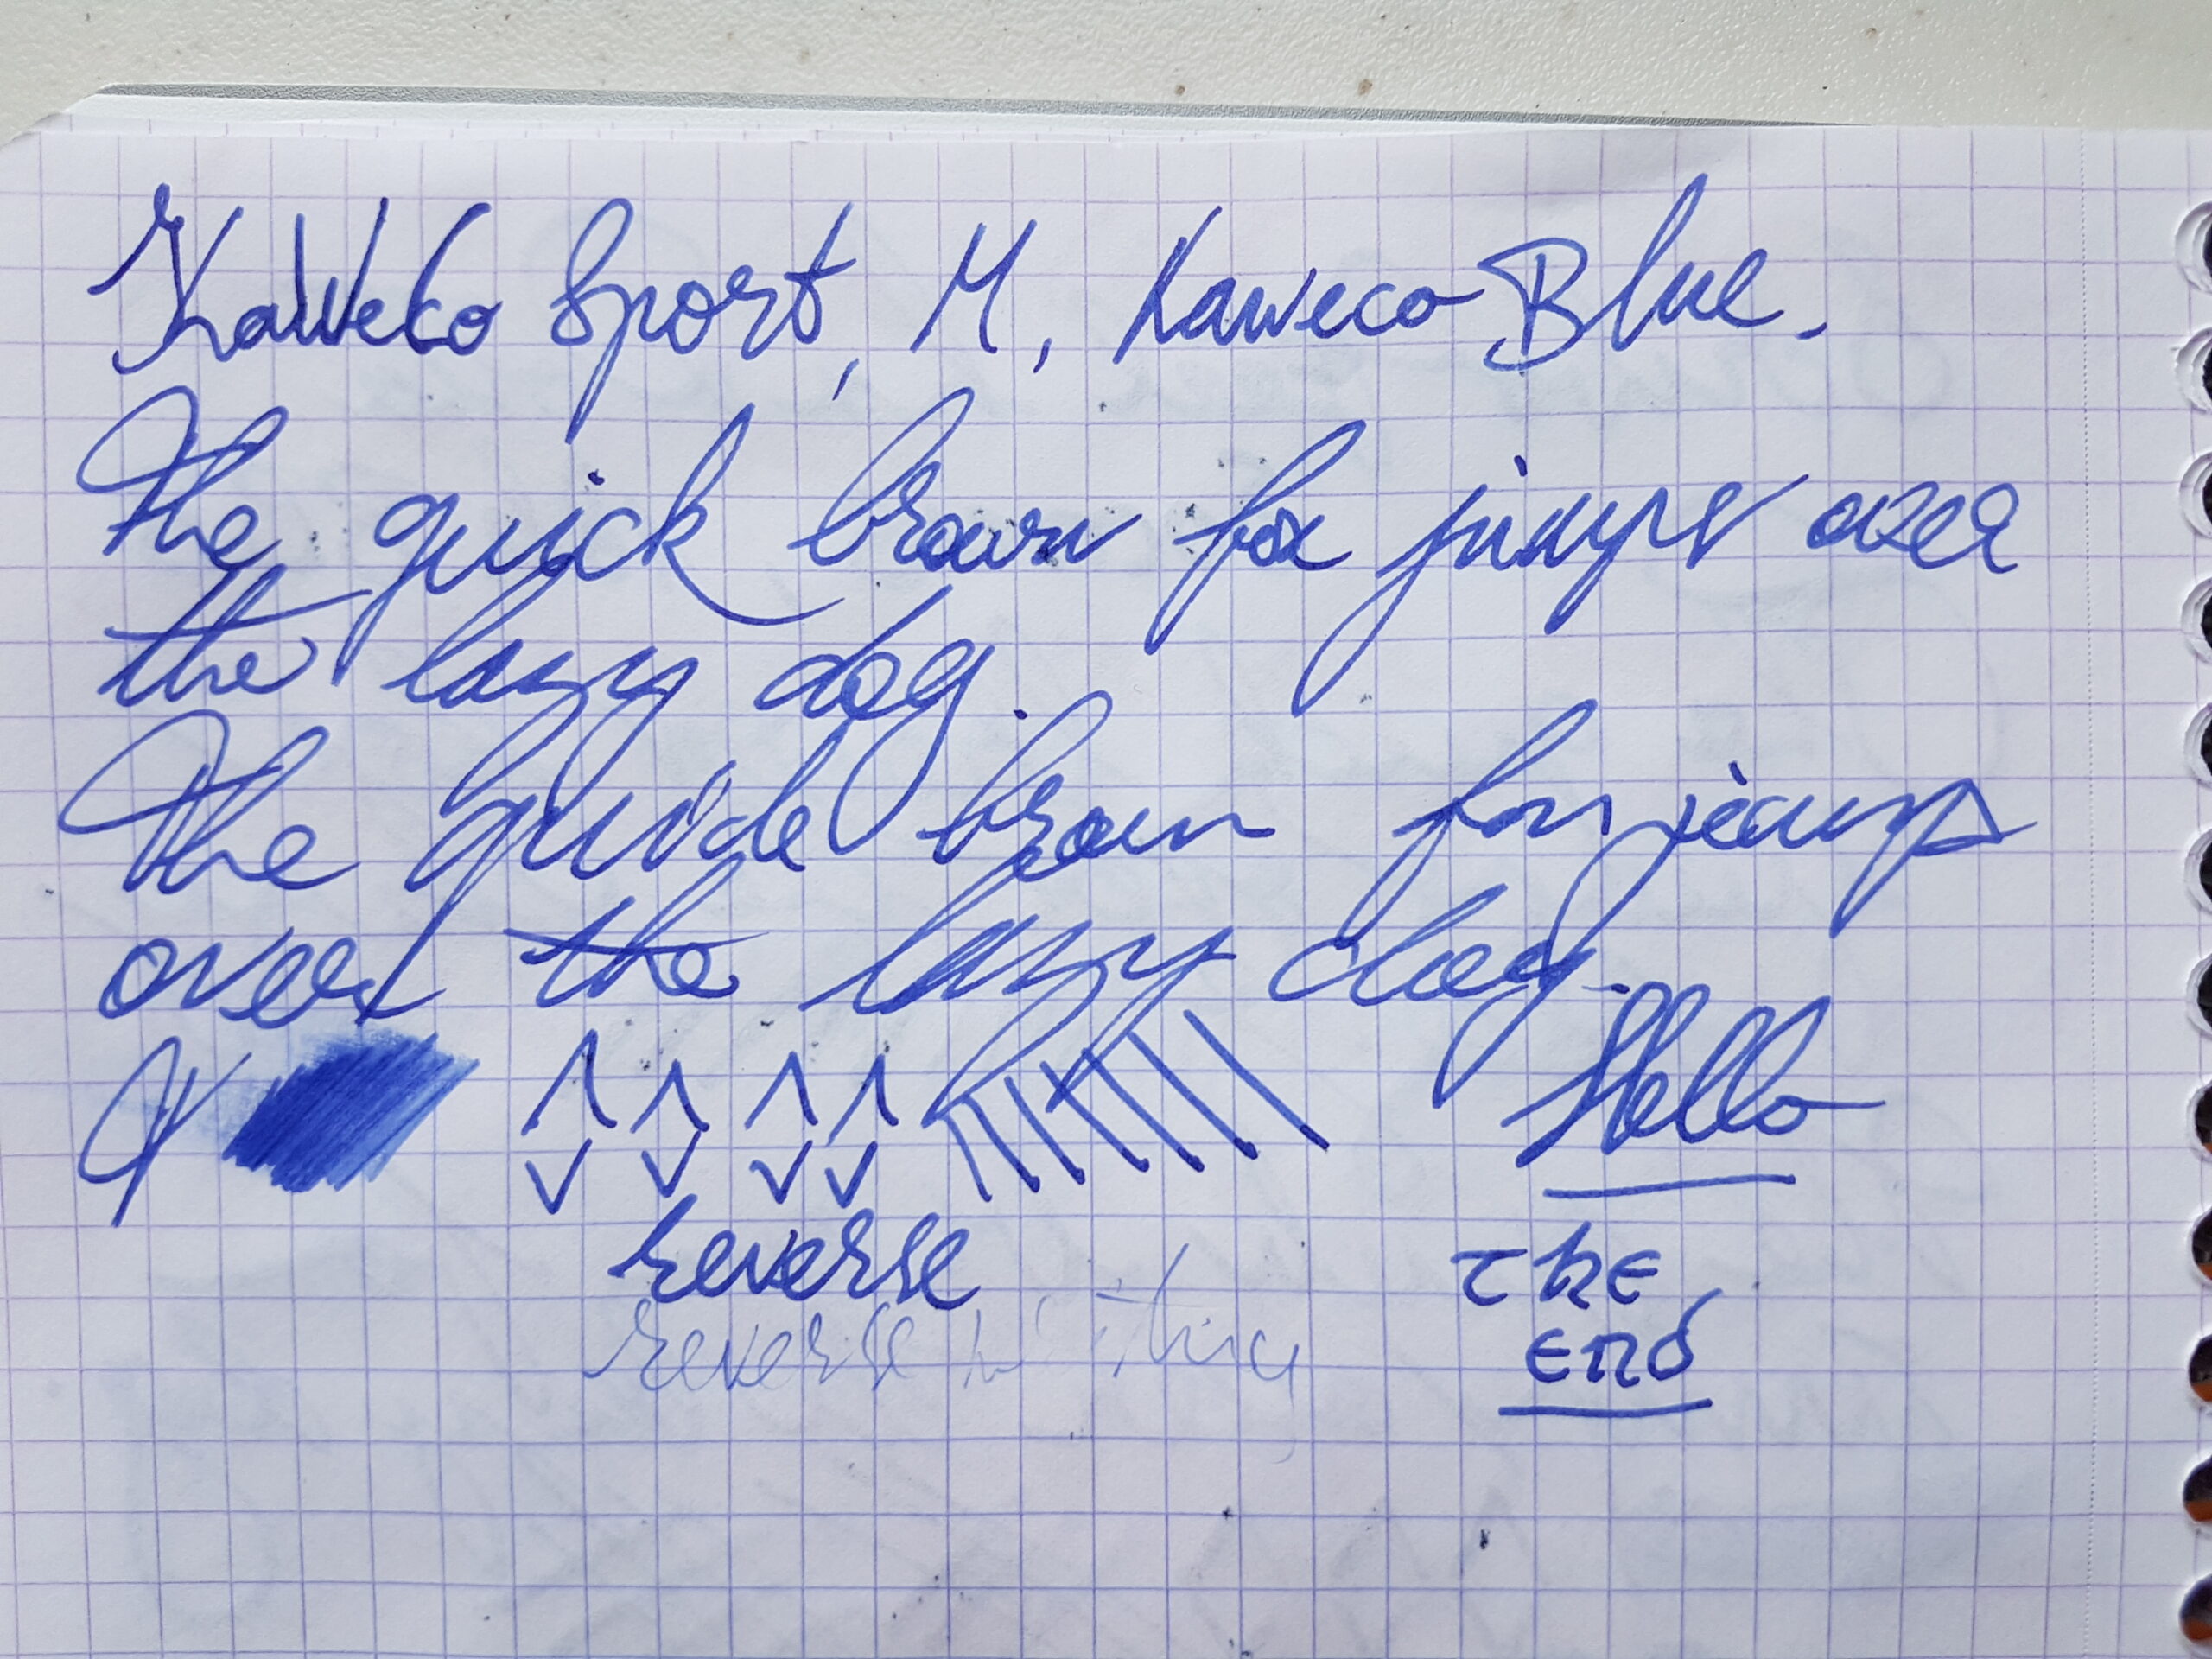 Kaweco Sport, M, Kaweco Blue.
The quick brown fox jumps over
the lazy dog.
The quick brown fox jumps
over the lazy dog.
Hello
reverse
reverse writing
The
end